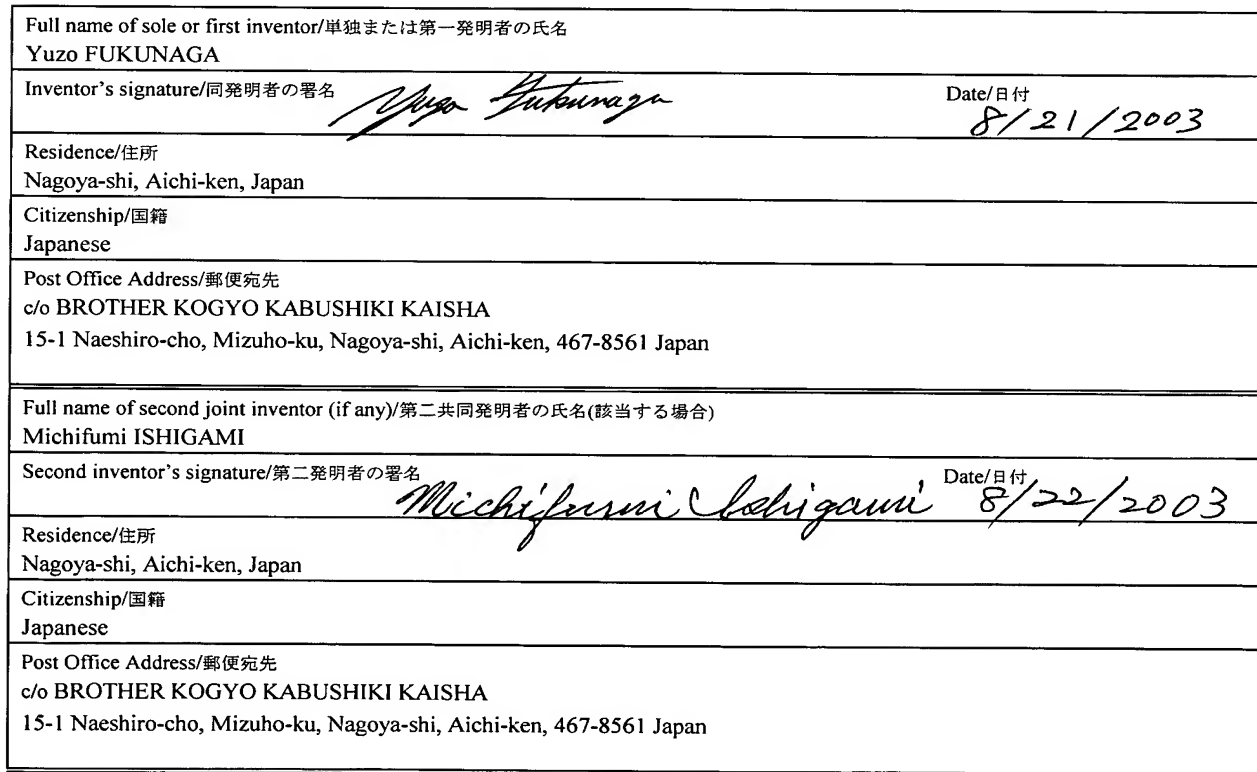 Full name of sole or first inventor/単独または第一発明者の氏名
Yuzo FUKUNAGA
Inventor's signature/同発明者の署名 Yuzo Fukunaga Date/日付
8/21/2003
Residence/住所
Nagoya-shi, Aichi-ken, Japan
Citizenship/国籍
Japanese
Post Office Address/郵便宛先
c/o BROTHER KOGYO KABUSHIKI KAISHA
15-1 Naeshiro-cho, Mizuho-ku, Nagoya-shi, Aichi-ken, 467-8561 Japan
Full name of second joint inventor (if any)/第二共同発明者の氏名(該当する場合)
Michifumi ISHIGAMI
Second inventor's signature/第二発明者の署名 Date/日付
Michifumi Ishigami 8/22/2003
Residence/住所
Nagoya-shi, Aichi-ken, Japan
Citizenship/国籍
Japanese
Post Office Address/郵便宛先
c/o BROTHER KOGYO KABUSHIKI KAISHA
15-1 Naeshiro-cho, Mizuho-ku, Nagoya-shi, Aichi-ken, 467-8561 Japan